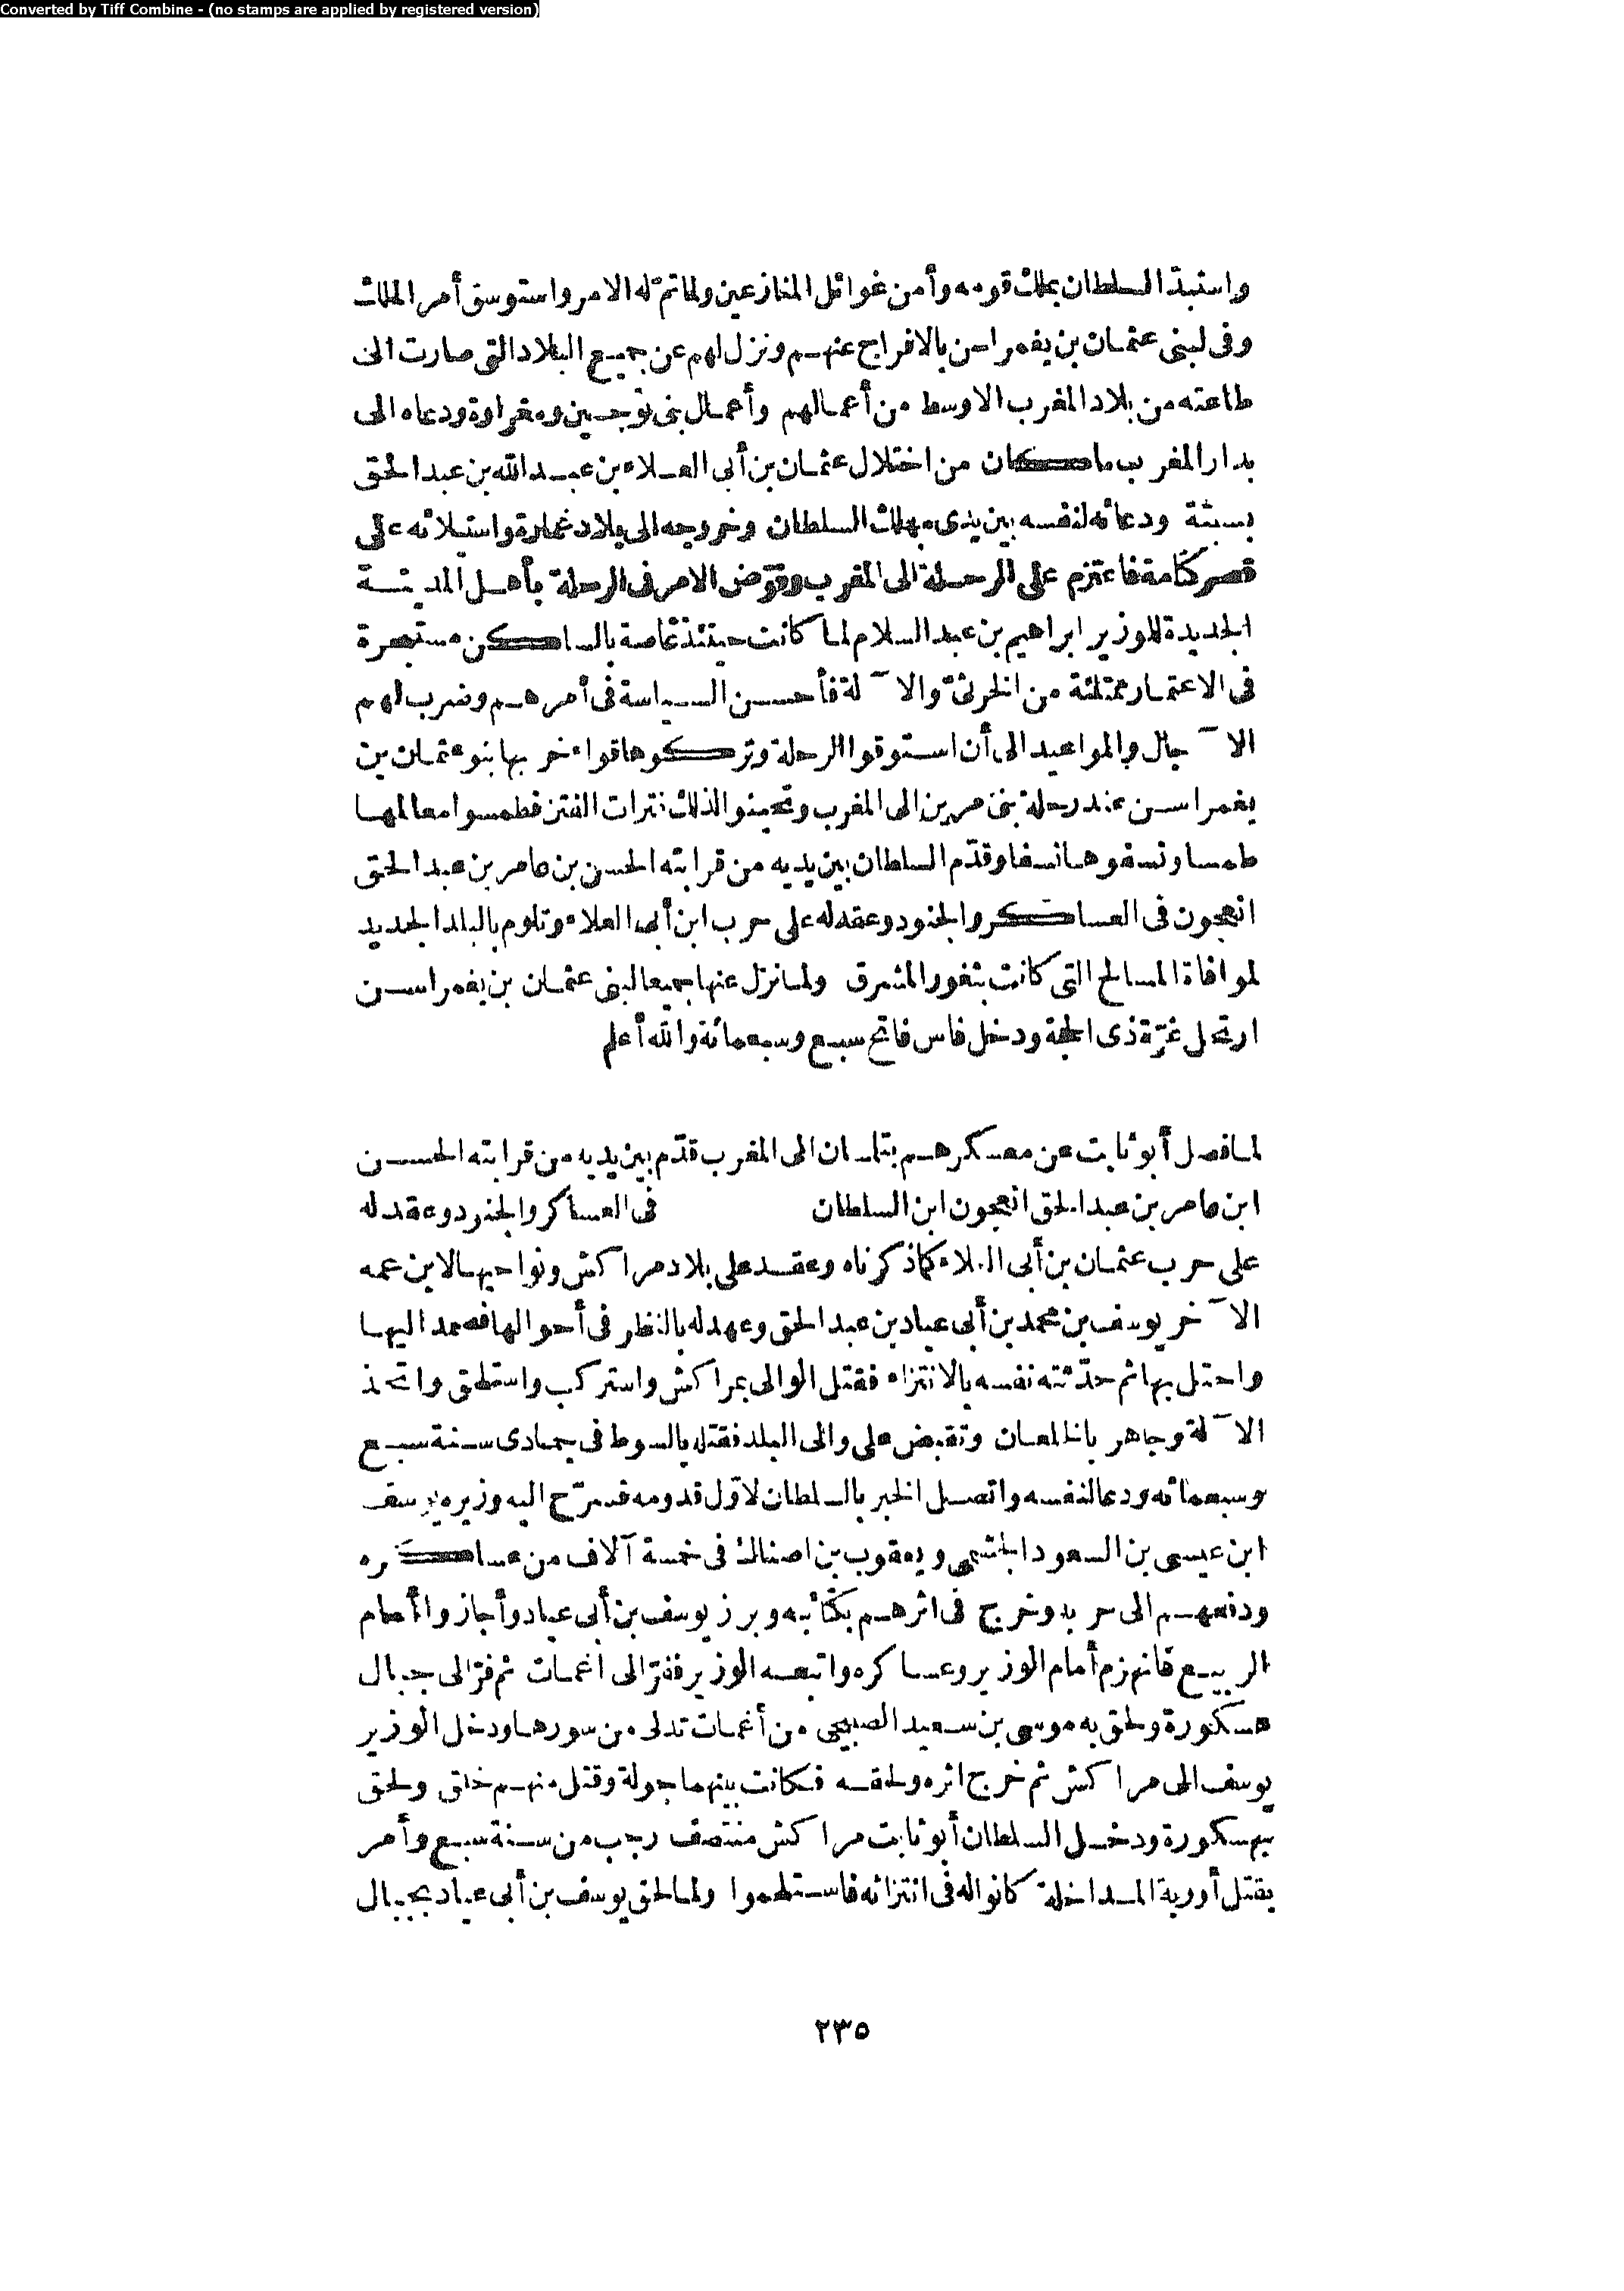 Converted by Tiff Combine - (no stamps are applied by registered version)
واستبدّ السلطان بملك قومه وأمن غوائل المنازعين ولما تمّ له الامر واستوسق أمر الملك
وفى لبنى عثمان بن يغمراسن بالافراج عنهم ونزل لهم عن جميع البلاد التى صارت الى
طاعته من بلاد المغرب الاوسط من أعمالهم وأعمال بنى توجين ومغراوة ودعاه الى
بدار المغرب ما كان من اختلال عثمان بن أبى العلاء بن عبد الله بن عبد الحق
بسبتة ودعائه لنفسه بين يدى مهلك السلطان وخروجه الى بلاد غمارة واستيلائه على
قصر كتامة فاعتزم على الرحلة الى المغرب وفوّض الامر فى الرحلة بأهل المدينة
الجديدة للوزير ابراهيم بن عبد السلام لما كانت حينئذ غاصة بالساكن مستبحرة
فى الاعتمار ممتلئة من الخرثىّ والآلة فأحسن السياسة فى أمرهم وضرب لهم
الآجال والمواعيد الى أن استوفوا الرحلة وتركوها قواء خربها بنو عثمان بن
يغمراسن عند رحلة بنى مرين الى المغرب وتحينوا لذلك فترات الفتن فطمسوا معالمها
طمسا ونسفوها نسفا وقدّم السلطان بين يديه من قرابته الحسن بن عامر بن عبد الحق
انعجون فى العساكر والجنود وعقد له على حرب ابن أبى العلاء وتلوم بالبلد الجديد
لموافاة المسالح التى كانت بثغور المشرق ولما نزل عنها جميعا لبنى عثمان بن يغمراسن
ارتحل غرّة ذى الحجة ودخل فاس فاتح سبع وسبعمائة والله أعلم
لما فصل أبو ثابت عن معسكرهم بتلمسان الى المغرب قدّم بين يديه من قرابته الحسن
ابن عامر بن عبد الحق انعجون ابن السلطان فى العساكر والجنود وعقد له
على حرب عثمان بن أبى العلاء كما ذكرناه وعقد على بلاد مراكش ونواحيها لابن عمه
الآخر يوسف بن محمد بن أبى عياد بن عبد الحق وعهد له بالنظر فى أحوالها فعمد اليها
واحتل بها ثم حدّثته نفسه بالانتزاء فقتل الوالى بمراكش واستركب واستلحق واتخذ
الآلة وجاهر بالخلعان وتقبض على والى البلد فقتله بالسوط فى جمادى سنة سبع
وسبعمائه ودعا لنفسه واتصل الخبر بالسلطان لاوّل قدومه فسرّح اليه وزيره يوسف
ابن عيسى بن السعود الجشمى ويعقوب بن اصناك فى خمسة آلاف من عساكره
ودفعهم الى حربه وخرج فى اثرهم بكتائبه وبرز يوسف بن أبى عياد وأجازوا أم
الربيع فانهزم أمام الوزير وعساكره واتبعه الوزير ففرّ الى اغمات ثم فرّ الى جبال
هسكورة ولحق به موسى بن سعيد الصبيحى من أغمات تدلى من سورها ودخل الوزير
يوسف الى مراكش ثم خرج اثره ولحقه فكانت بينهما جولة وقتل منهم خلق ولحق
بهسكورة ودخل السلطان أبو ثابت مراكش منتصف رجب من سنة سبع وأمر
بقتل أوربة المداخلة كانوا له فى انتزائه فاستلحموا ولما لحق يوسف بن أبى عياد بجبال
٢٣٥